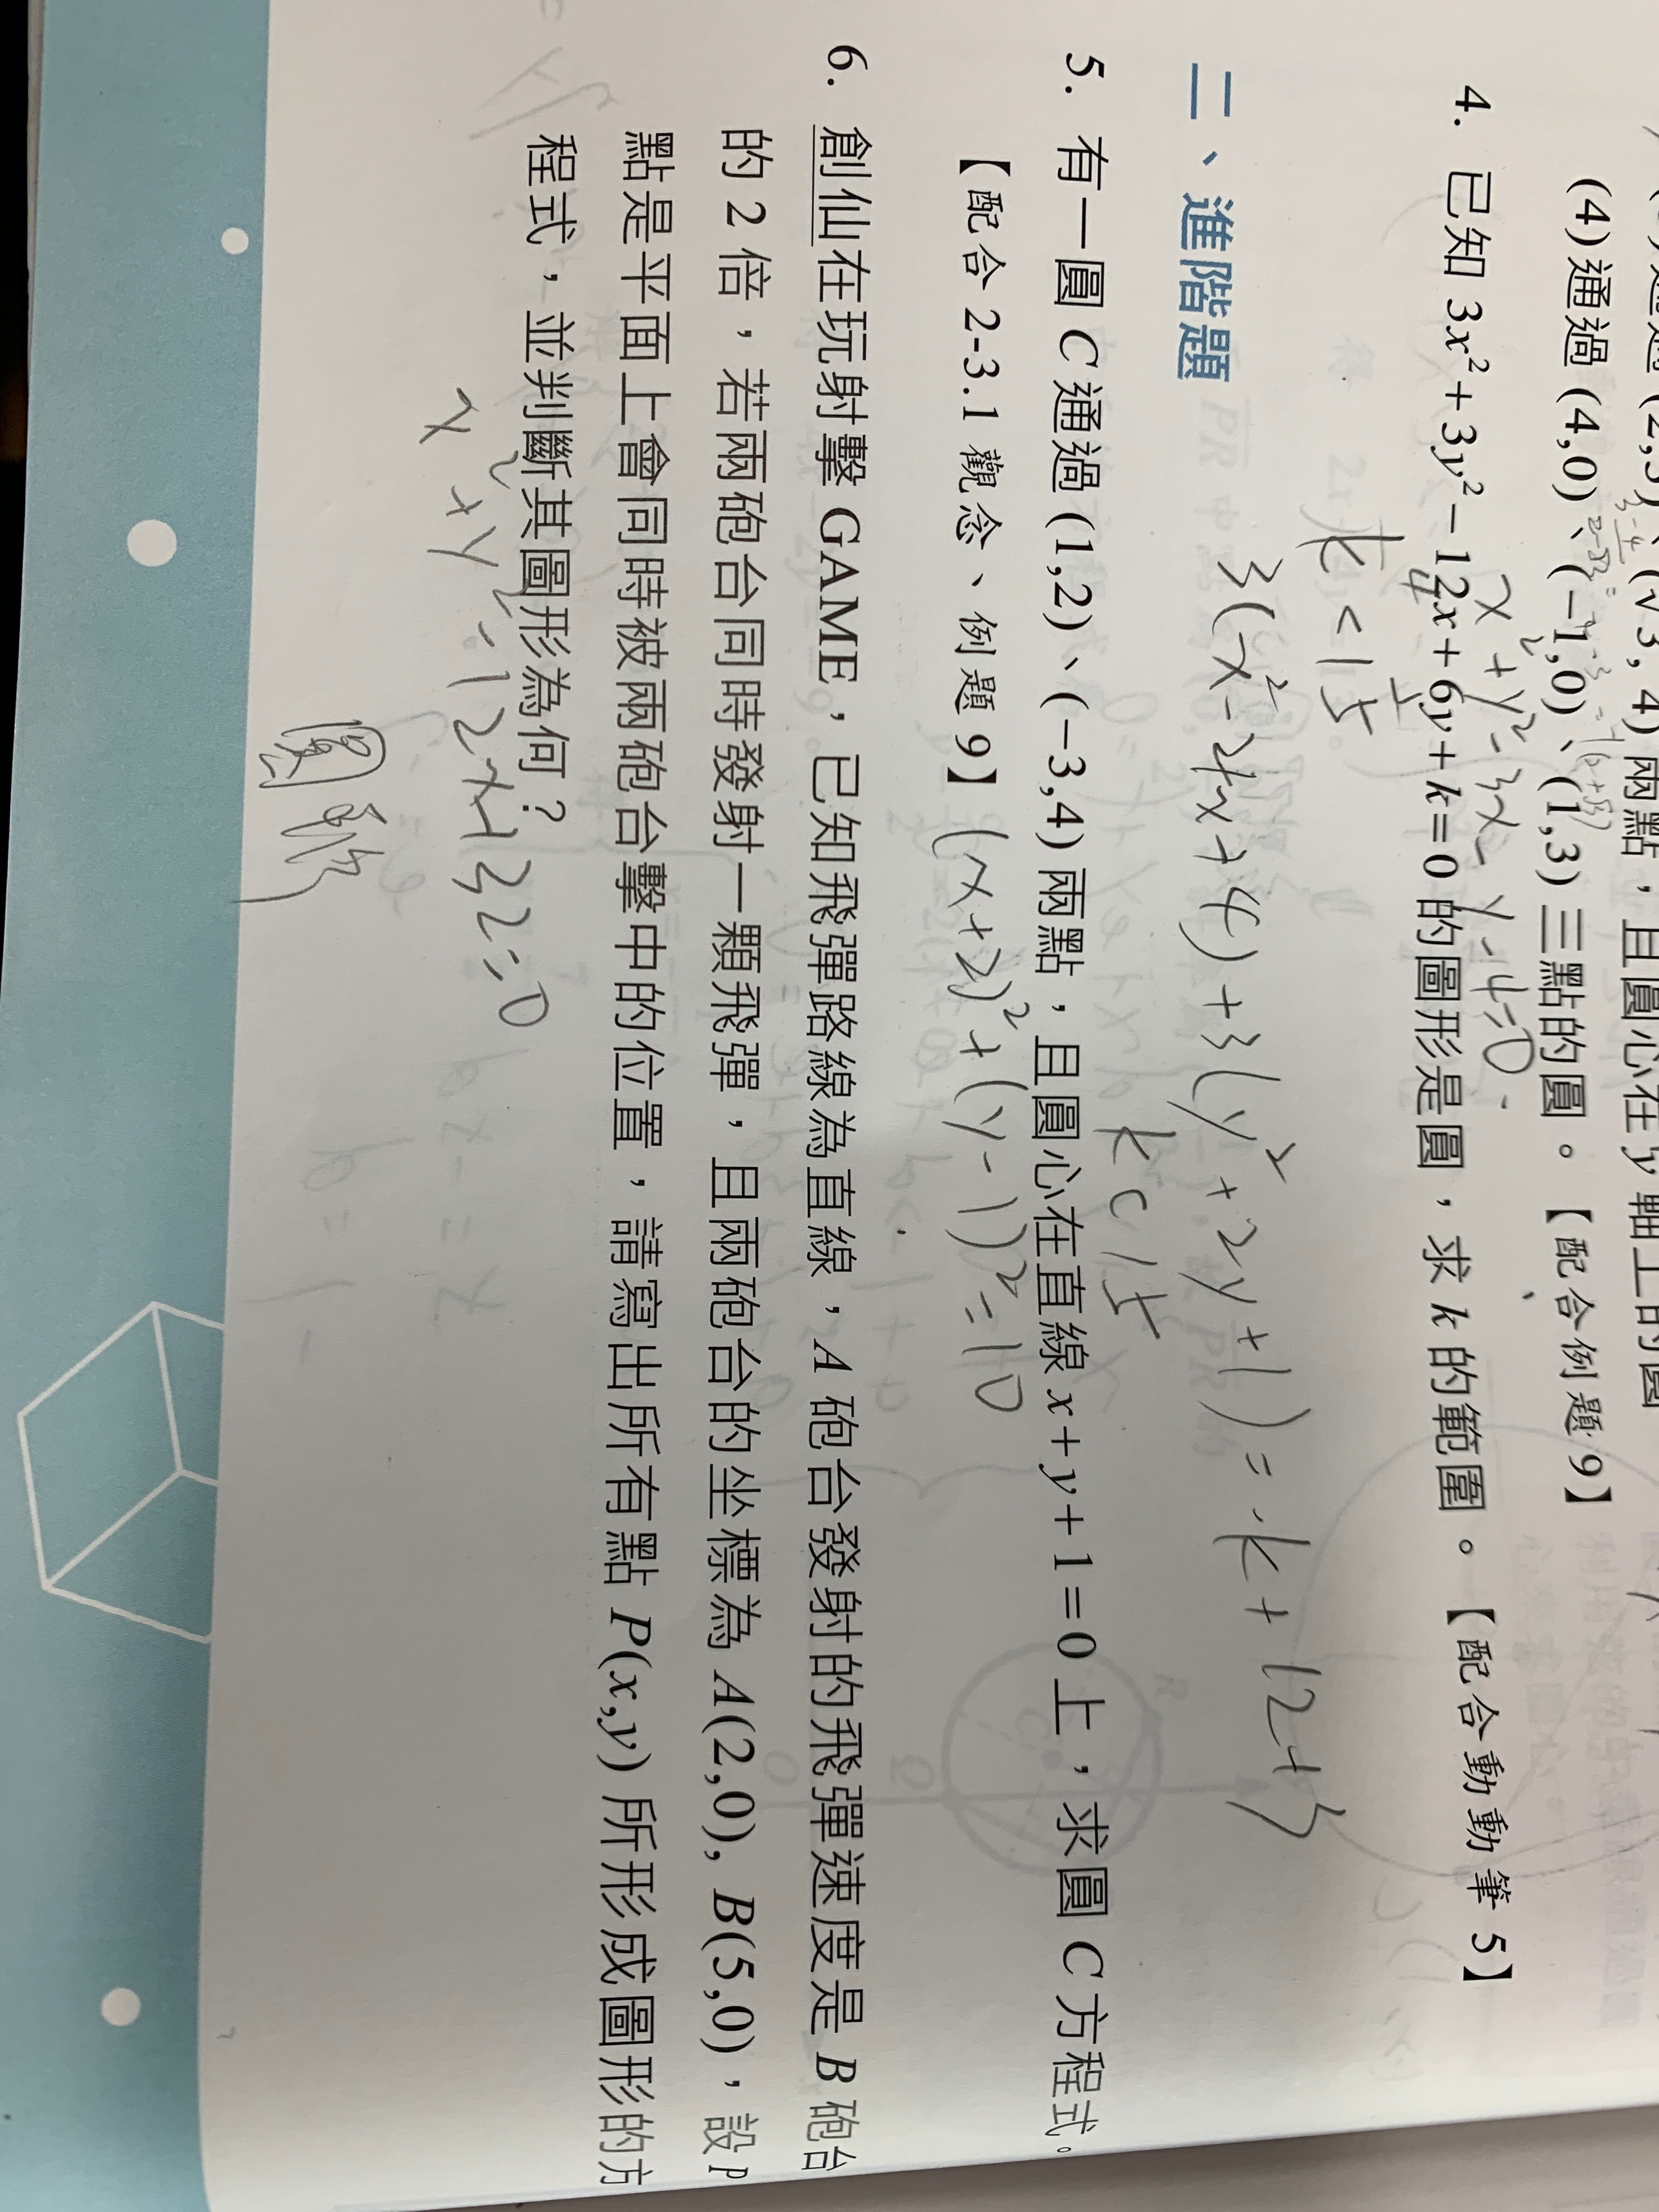 (4)通過 (4,0)、(−1,0)、(1,3) 三點的圓。【配合例題 9】
x²+y²-3x-y-4=0
4. 已知 3x²+3y²−12x+6y+k=0 的圖形是圓,求 k 的範圍。【配合動動筆 5】
k<15
3(x²-4x+4)+3(y²+2y+1)=-k+12+3
k<15
二、進階題
5. 有一圓 C 通過 (1,2)、(−3,4) 兩點,且圓心在直線 x+y+1=0 上,求圓 C 方程式。
【配合 2-3.1 觀念、例題 9】
(x+2)²+(y-1)²=10
6. 創仙在玩射擊 GAME,已知飛彈路線為直線,A 砲台發射的飛彈速度是 B 砲台
的 2 倍,若兩砲台同時發射一顆飛彈,且兩砲台的坐標為 A(2,0), B(5,0),設 P
點是平面上會同時被兩砲台擊中的位置,請寫出所有點 P(x,y) 所形成圖形的方
程式,並判斷其圖形為何?
x²+y²-12x+32=0
圓形